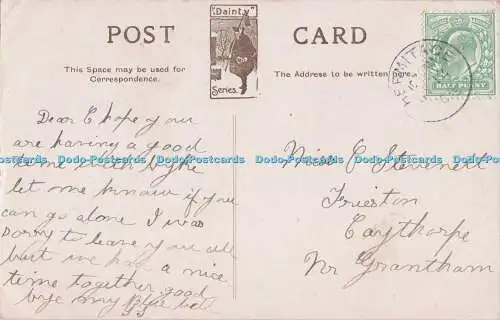 POST CARD
"Dainty"
Series.
This Space may be used for
Correspondence.
The Address to be written here.
HERMITAGE
HALF PENNY
Dear E hope your
are having a good
time with
let me know if you
can go alone I was
sorry to leave you all
but we had a nice
time together good
bye my Blue bell
Miss E Stevenett
Frieston
Caythorpe
Nr Grantham
Dodo-Postcards Dodo-Postcards Dodo-Postcards Dodo-Postcards Dodo-Postcards Dodo-Postcards